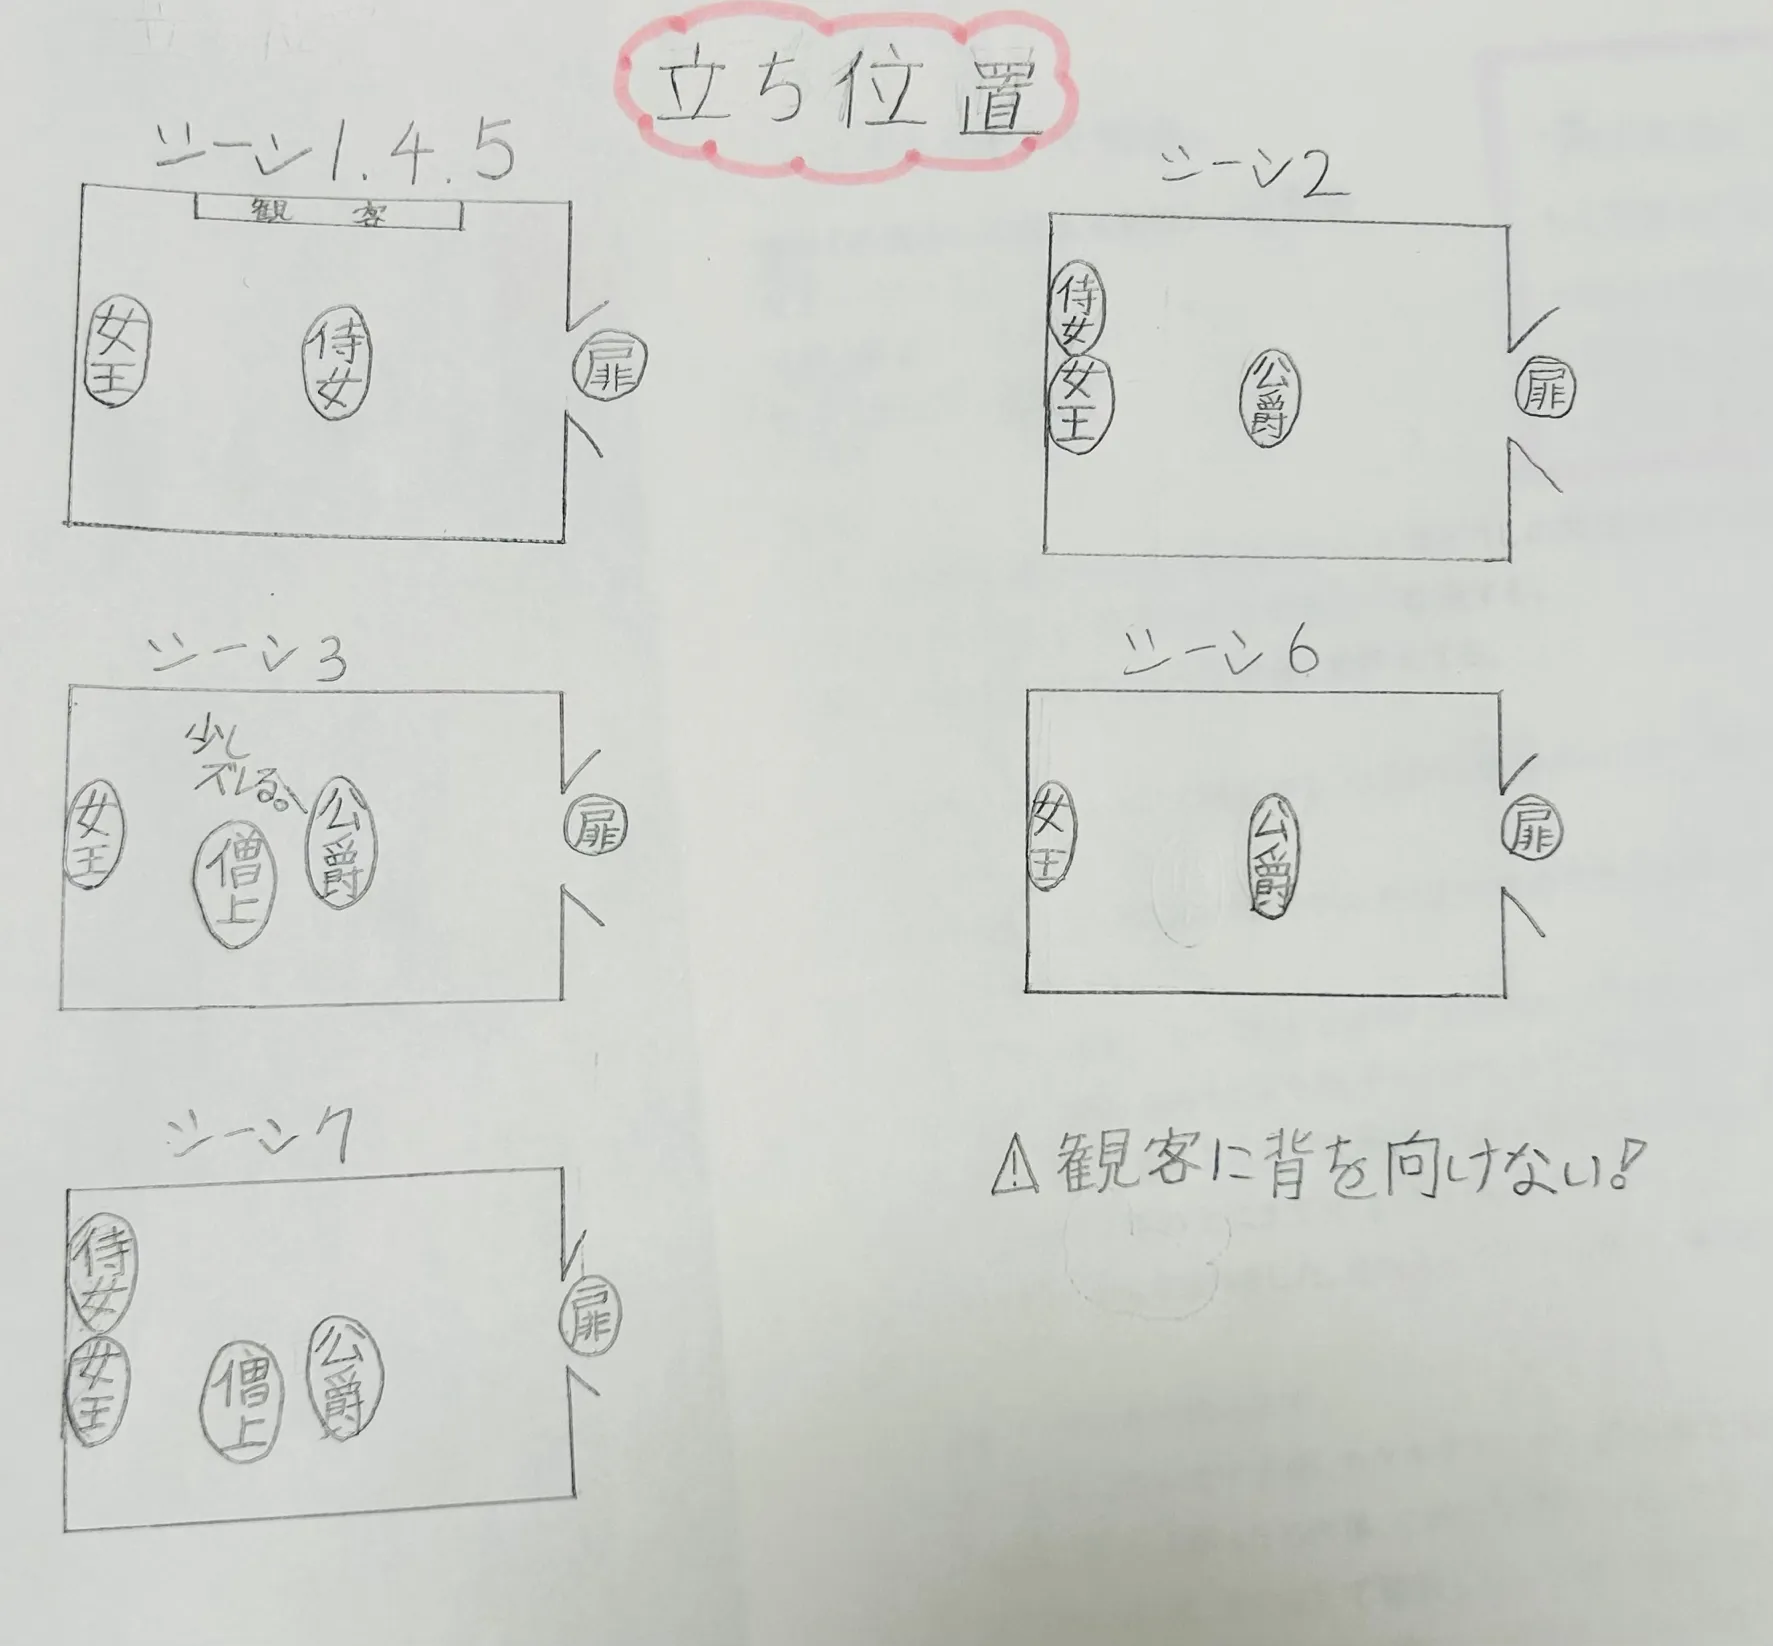 立ち位置
シーン1.4.5
観客
女王
侍女
扉
シーン2
侍女
女王
公爵
扉
シーン3
少し
ズレる。
女王
僧上
公爵
扉
シーン6
女王
公爵
扉
シーン7
侍女
女王
僧上
公爵
扉
⚠観客に背を向けない!